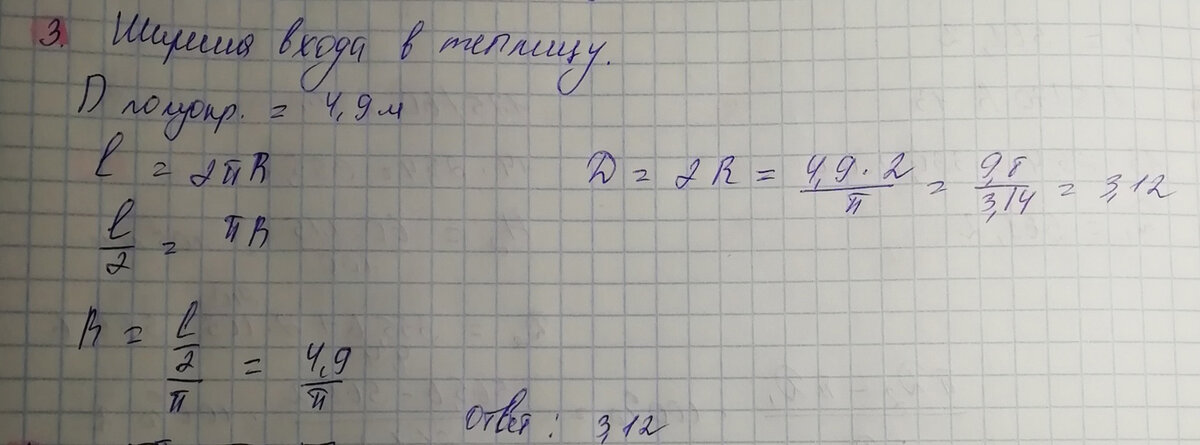 3. Ширина входа в теплицу.
D полуокр. = 4,9 м
l = 2πR
l/2 = πR
R = l/2/π = 4,9/π
D = 2R = 4,9 · 2/π = 9,8/3,14 = 3,12
Ответ: 3,12